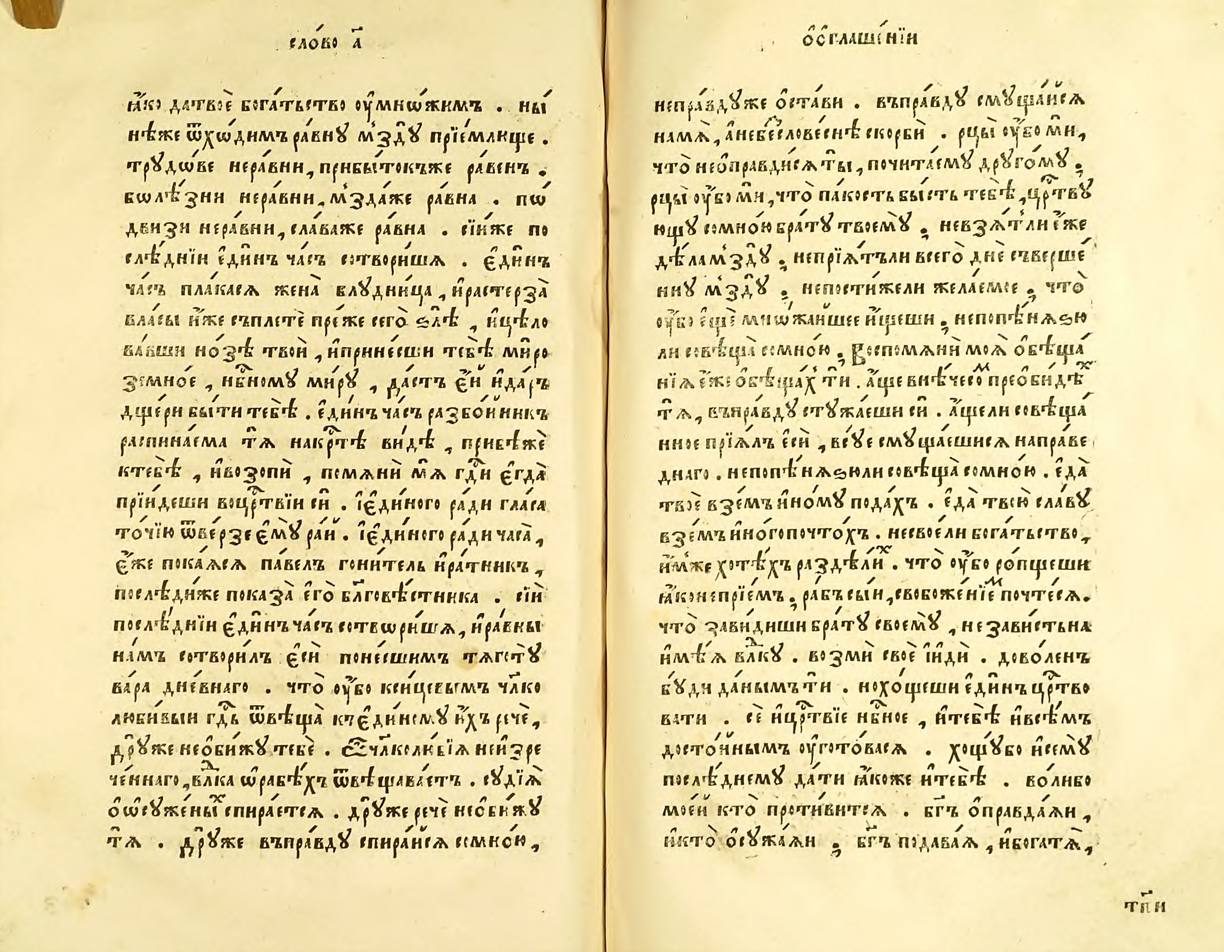 сло́во а҃
ꙗ҆́ко датвоѐ бога́тьство оу҆мнѡ́жимъ . ны́
нѣже ѿхѡ́димъ ра́внꙋ м́здꙋ прїе́млюще .
трꙋдѡ́ве нера́вни , прибы́токъже ра́венъ .
бѡлѣ́зни нера́вни , м́здаже ра́вна . пѡ́
двизи нера́вни , сла́важе ра́вна . сїи́же по
слѣ́днїи є҆ди́нъ ча́съ сотвори́шѧ . є҆ди́нъ
ча́съ пла́касѧ жена̀ блꙋдни́ца , и҆растерза̀
вла́сы и҆́же съплетѐ пре́же сего̀ ѕлѣ̀ , и҆цѣло
ва́вши но́зѣ твоѝ , и҆прине́сши тебѣ̀ ми́ро
земно́е , нбⷭ҇номꙋ ми́рꙋ , да́стъ є҆́й и҆да́ръ
дще́ри бы́ти тебѣ̀ . є҆ди́нъ ча́съ разбо́йникъ
распина́ема тѧ̀ накрⷭ҇тѣ ви́дѣ , прибѣжѐ
ктебѣ̀ , и҆возопѝ , помѧни́ мѧ гдⷭ҇и є҆гда̀
прїи́деши воцрⷭ҇твїи сѝ . і҆є҆ди́ного ради гла́са
то́чїю ѿве́рзе є҆мꙋ̀ ра́й . і҆є҆ди́ного ради ча́са ,
є҆́же пока́ѧсѧ па́велъ гони́тель и҆ра́тникъ ,
послѣ́диже показа̀ є҆го̀ бл҃говѣ́стника . сїѝ
послѣ́днїи є҆ди́нъ ча́съ сотвѡри́шѧ , и҆ра́вны
на́мъ сотвори́лъ є҆сѝ поне́сшимъ тѧготꙋ̀
ва́ра дне́внаго . что̀ оу҆́бо концевы́мъ чл҃ко
люби́выи гдⷭ҇ь ѿвѣща̀ къє҆ди́номꙋ и҆́хъ речѐ ,
дрꙋ́же неѡби́жꙋ тебѐ . Ѽчл҃колю́бїѧ неизре
че́ннаго , влⷣка ѡ҆рабѣ́хъ ѿвѣщава́етъ . сꙋдїѧ̀
о҆ѡ҆сꙋже́ныⷯ спира́етсѧ . дрꙋ́же речѐ неѡби́жꙋ
тѧ̀ . дрꙋ́же въпра́вдꙋ спира́йсѧ сомно́ю ,
о҆ѡ҆глаше́нїи
непра́вдꙋже ѡ҆ста́ви . въпра́вдꙋ смꙋща́йсѧ
намѧ̀ , а҆небесслове́снѣ скорбѝ . рцы̀ оу҆́бо мѝ ,
что̀ неѡ҆правди́сѧ ты̀ , почита́емꙋ дрꙋго́мꙋ ;
рцы̀ оу҆́бо мѝ , что̀ па́кость бы́сть тебѣ̀ , црⷭ҇твꙋ
ющꙋ сомно́ю бра́тꙋ твоемꙋ̀ ; невзѧ́тъли є҆́же
дѣ́ла м́здꙋ ; непрїѧ́тъли всего̀ днѐ съверше́
ннꙋ м́здꙋ ; непости́жели жела́емое ; что̀
оу҆́бо є҆щѐ мнѡ́жаишее и҆́щеши ; непопѣ́нѧѕю
ли совѣща̀ сомно́ю ; воспомѧнѝ моѧ̀ ѡ҆бѣща́
нїѧ є҆́же ѡ҆бѣща́хꙿ тѝ . а҆́ще внѣ́чесоⷨ преѡби́дѣⷯ
тѧ̀ , въпра́вдꙋ стꙋжа́еши сѝ . а҆́щели совѣща́
нное прїѧ́лъ є҆сѝ , всꙋ́е смꙋща́ешисѧ напра́ве
днаго . непопѣ́нѧѕюли совѣща̀ сомно́ю . є҆да̀
твоѐ взе́мъ и҆но́мꙋ пода́хъ . є҆да̀ твою̀ сла́вꙋ
взе́мъ и҆но́гопочто́хъ . несвоелѝ бога́тьство ,
и҆́мже хотѣ́хъ раздѣли́ⷯ . что̀ оу҆́бо ро́пщеши
ꙗ҆́конепрїе́мъ ; ра́бъ сы́и , свобоже́нїеⷨ почте́сѧ .
что̀ зави́диши бра́тꙋ своемꙋ̀ , неза́вистьна
и҆мѣ́ѧ влⷣкꙋ . возмѝ своѐ і҆идѝ . дово́ленъ
бꙋ́ди да́нымъ тѝ . но́хощеши є҆ди́нъ црⷭ҇тво
вати . сѐ и҆црⷭ҇твїе нбⷭ҇ное , и҆тебѣ̀ и҆все́мъ
досто́йнымъ оу҆гото́васѧ . хощꙋ́бо и҆семꙋ̀
послѣ́днемꙋ да́ти ꙗ҆́коже и҆тебѣ̀ . во́либо
мое́й кто̀ проти́витсѧ . бг҃ъ ѡ҆правда́ѧи ,
и҆кто̀ ѡ҆сꙋжа́ѧи ; бг҃ъ подава́ѧ , и҆богатѧ̀ ,
тп҃и